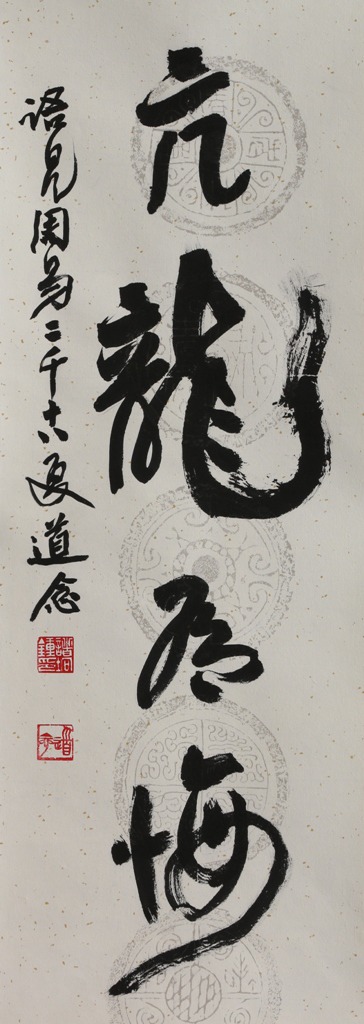 亢龍有悔
語見周易二千十八夏道念